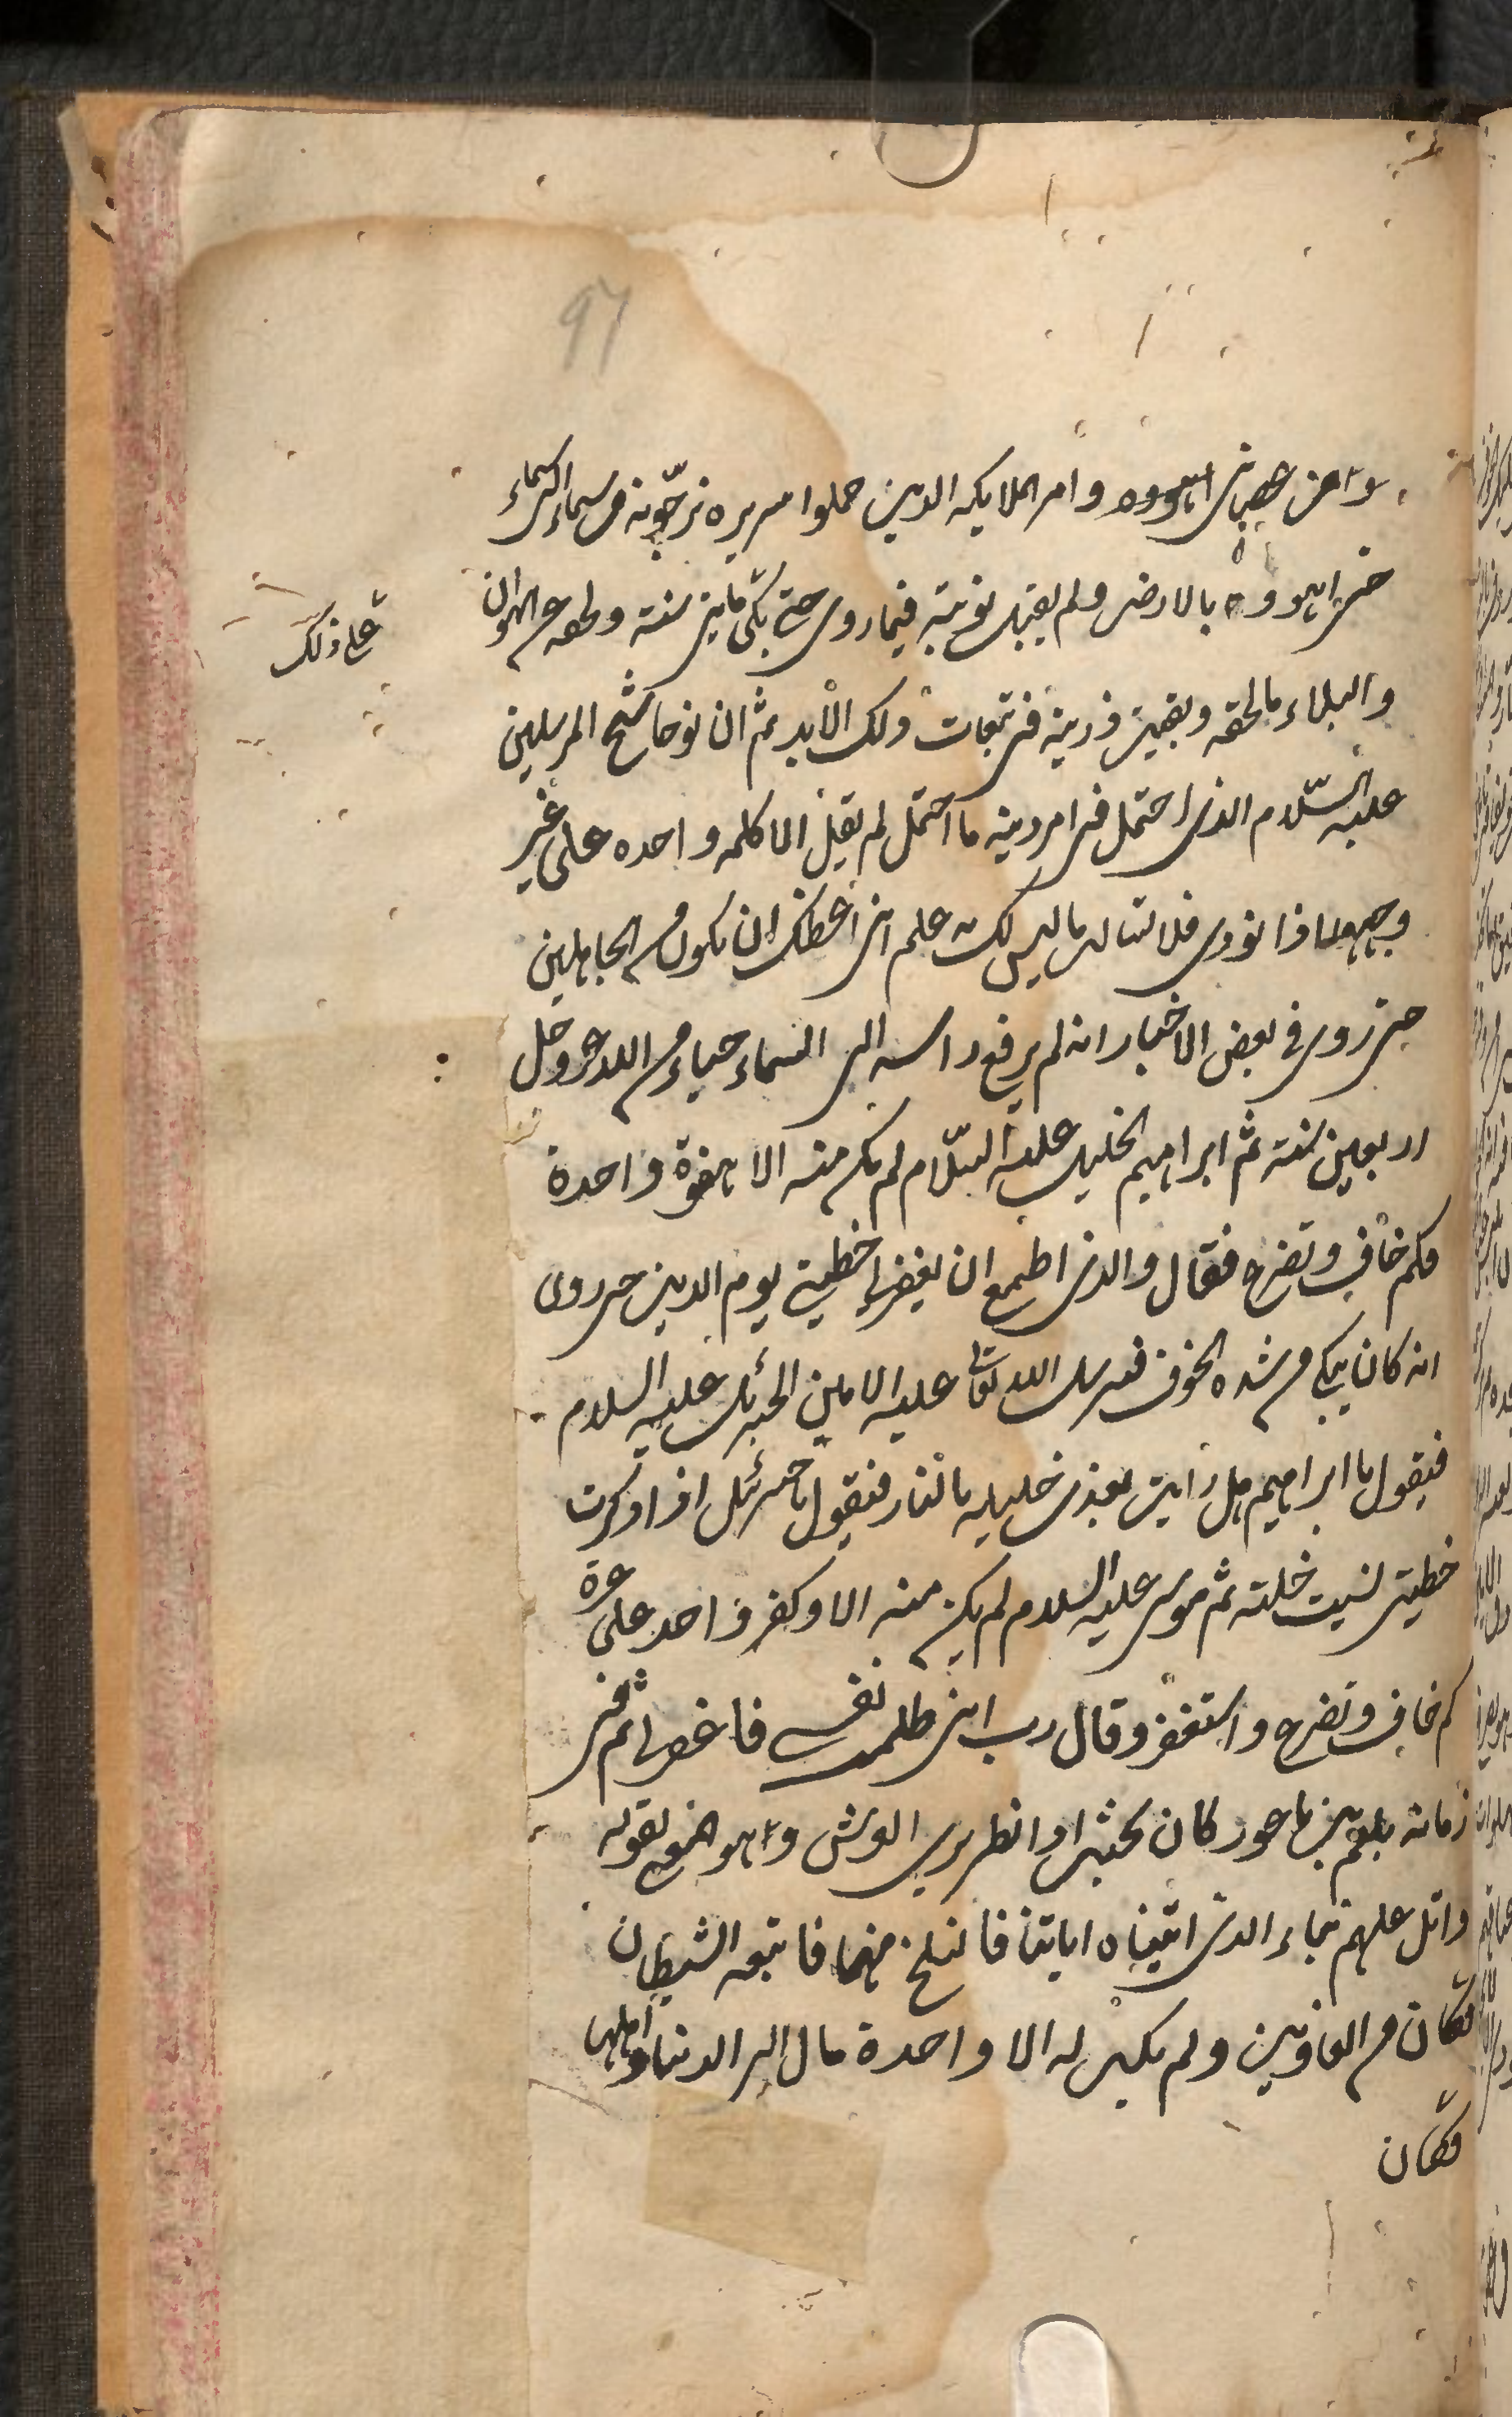 97
وامر الملايكه الذين حملوا سريره يزجّونه من سماء الى سماء
حتى اهووه بالارض ولم يقبل توبته فيما روى حتى بكى مايتى سنة ولحقه من الهوان
والبلاء ما لحقه وبقيت ذريته فى تبعات ذلك الابد ثم ان نوحا شيخ المرسلين
على ذلك
عليه السّلام الذى احتمل فى امر دينه ما احتمل لم يقل الا كلمه واحده على غير
وجهها اذا نودى فلا تسالن ما ليس لك به علم انى اعظك ان تكون من الجاهلين
حتى روى فى بعض الاخبار انه لم يرفع راسه الى السماء حياء من الله عز وجل
اربعين سنة ثم ابراهيم الخليل عليه السّلام لم يكن منه الا هفوة واحدة
فكم خاف وتضرع فقال والذى اطمع ان يغفر لى خطيئتى يوم الدين حتى روى
انه كان يبكى من شده الخوف فيرسل الله تعالى عليه الامين الجبرئيل عليه السلام
فيقول يا ابراهيم هل رايت يعذب خليله بالنار فيقول يا جبرئيل اذا ذكرت
خطيئتى نسيت خلته ثم موسى عليه السلام لم يكن منه الا وكفر واحد على غرة
كم خاف وتضرع واستغفر وقال رب انى ظلمت نفسى فاغفر لى ثم فى
زمانه بلعم بن باعور كان بحيث اذا نظر يرى العرش وهو المعنى بقوله
واتل عليهم نباء الذى اتيناه اياتنا فانسلخ منها فاتبعه الشيطان
فكان من الغاوين ولم يكن له الا واحدة مال الى الدنيا واهلها
فكان